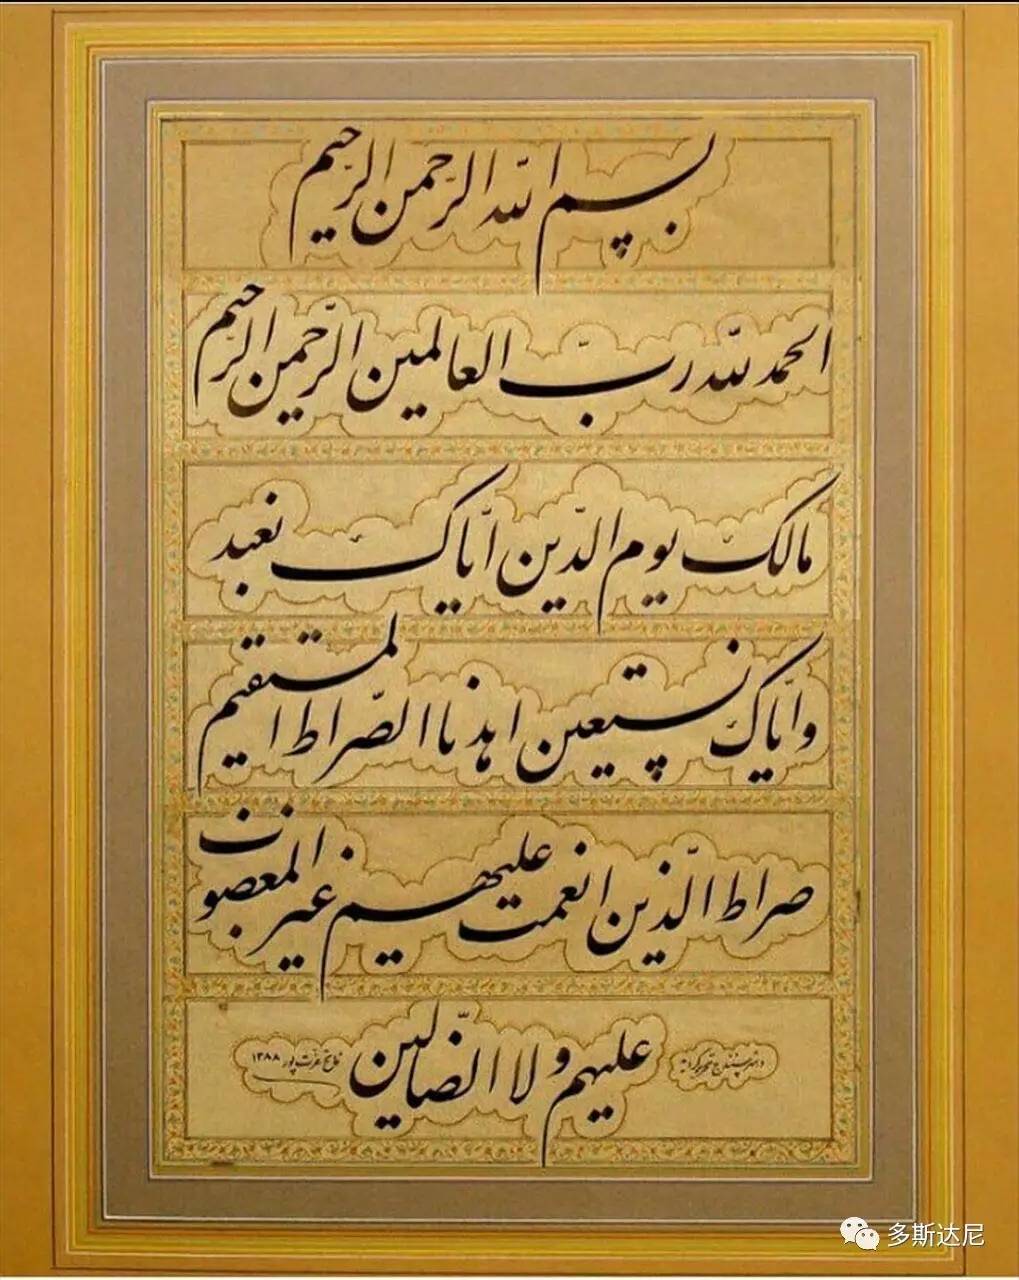 بسم الله الرّحمن الرّحیم
الحمد للّه ربّ العالمین الرّحمن الرّحیم
مالک یوم الدّین ایّاک نعبد
وایّاک نستعین اهدنا الصّراط المستقیم
صراط الّذین انعمت علیهم غیر المغضوب
علیهم ولا الضّالّین
۱۳۸۸
多斯达尼